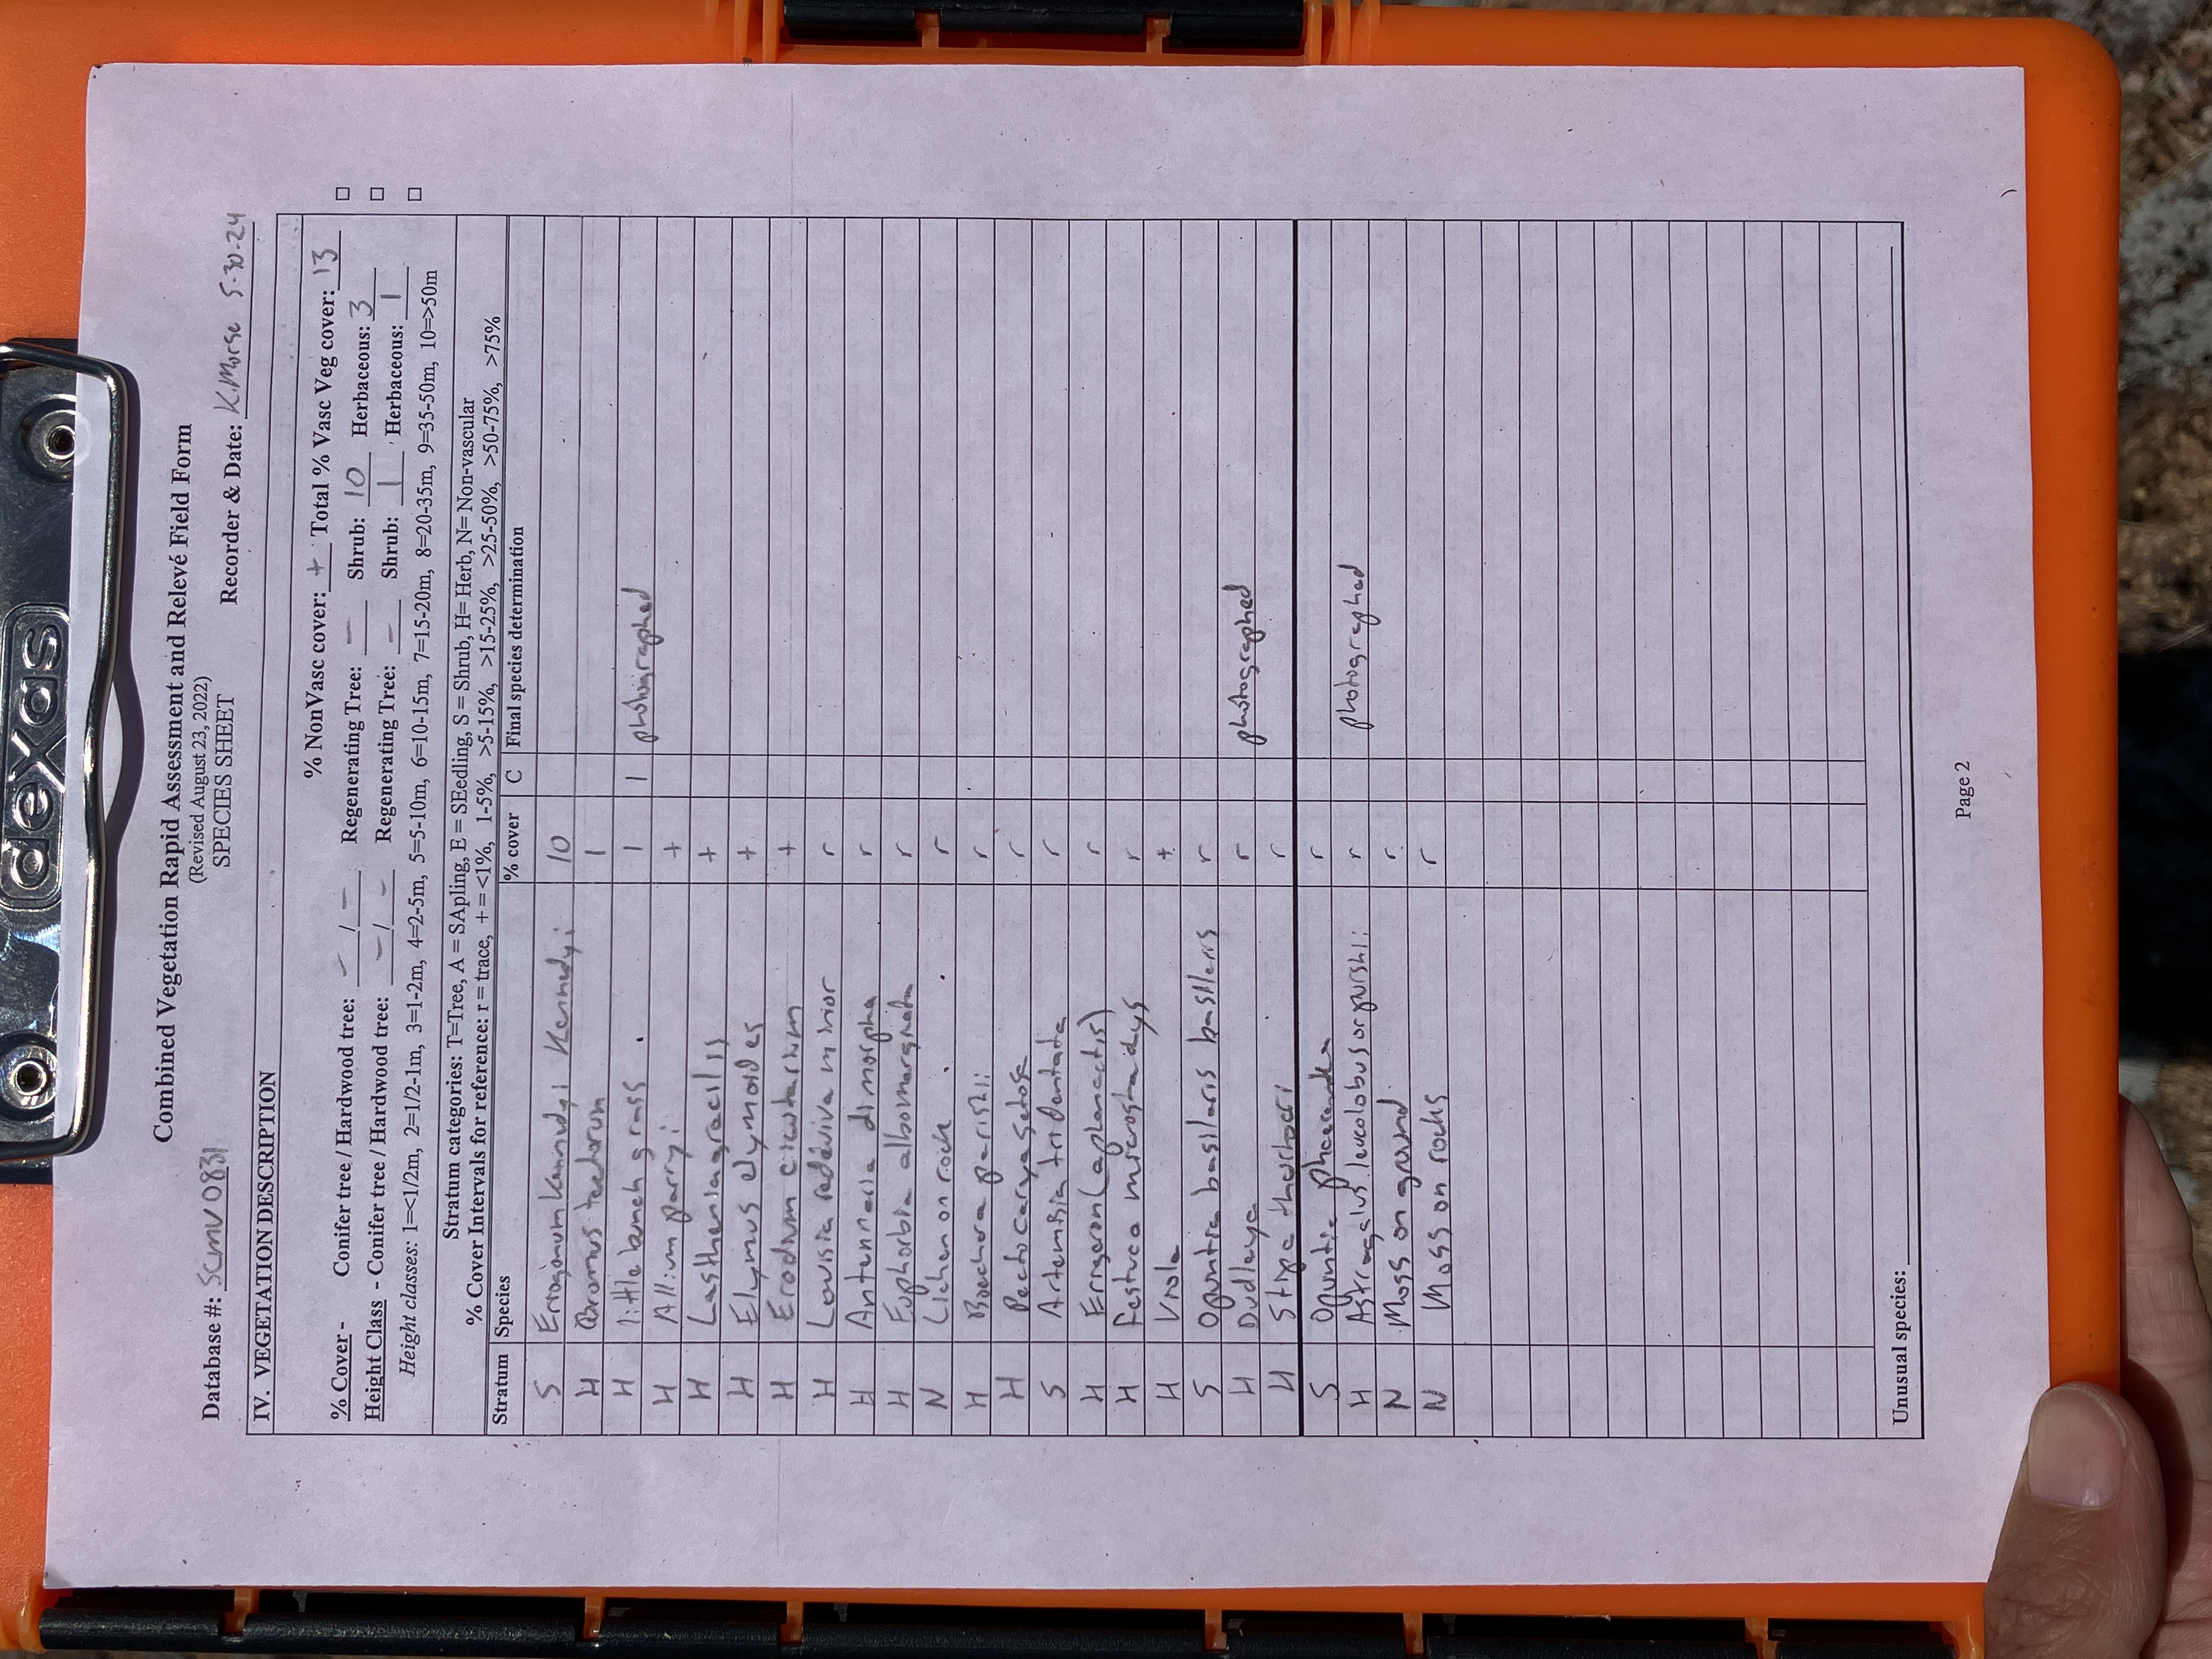 dexas
Combined Vegetation Rapid Assessment and Relevé Field Form
(Revised August 23, 2022)
SPECIES SHEET
Database #: SCMV0831 Recorder & Date: K.Morse 5-30-24
IV. VEGETATION DESCRIPTION
% NonVasc cover: + Total % Vasc Veg cover: 13
% Cover - Conifer tree / Hardwood tree: - / - Regenerating Tree: - Shrub: 10 Herbaceous: 3
Height Class - Conifer tree / Hardwood tree: - / - Regenerating Tree: - Shrub: 1 Herbaceous: 1
Height classes: 1=<1/2m, 2=1/2-1m, 3=1-2m, 4=2-5m, 5=5-10m, 6=10-15m, 7=15-20m, 8=20-35m, 9=35-50m, 10=>50m
Stratum categories: T=Tree, A = SApling, E = SEedling, S = Shrub, H= Herb, N= Non-vascular
% Cover Intervals for reference: r = trace, + = <1%, 1-5%, >5-15%, >15-25%, >25-50%, >50-75%, >75%
Stratum Species % cover C Final species determination
S Eriogonum Kennedyi Kennedyi 10
H Bromus tectorum 1
H little bunch grass 1 1 photographed
H Allium parryi +
H Lasthenia gracilis +
H Elymus elymoides +
H Erodium cicutarium +
H Lewisia rediviva minor r
H Antennaria dimorpha r
H Euphorbia albomarginata r
N Lichen on rock r
H Boechera parishii r
H Pectocarya setosa r
S Artemisia tridentata r
H Erigeron (aphanactis) r
H Festuca microstachys r
H Viola +
S Opuntia basilaris basilaris r
H Dudleya r photographed
H Stipa r
S Opuntia phaeacantha r
H Astragalus leucolobus or purshii r photographed
N Moss on ground r
N Moss on rocks r
Unusual species:
Page 2